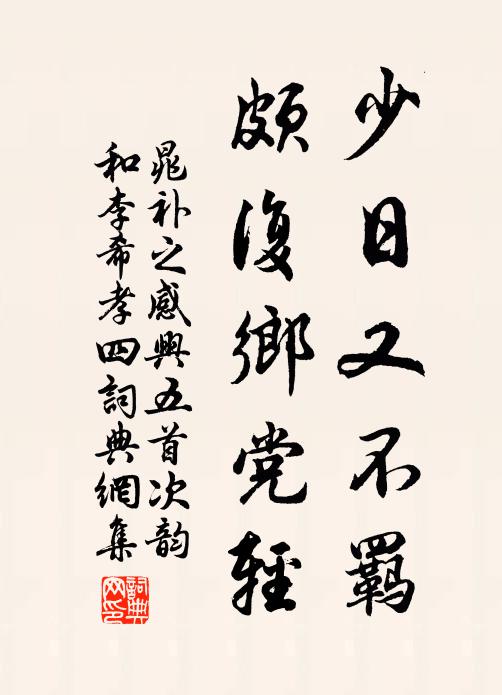 少日又不羈
頗復鄉党輕
晁补之感興五首次韵
和李希孝四詞典網集
詞典网印